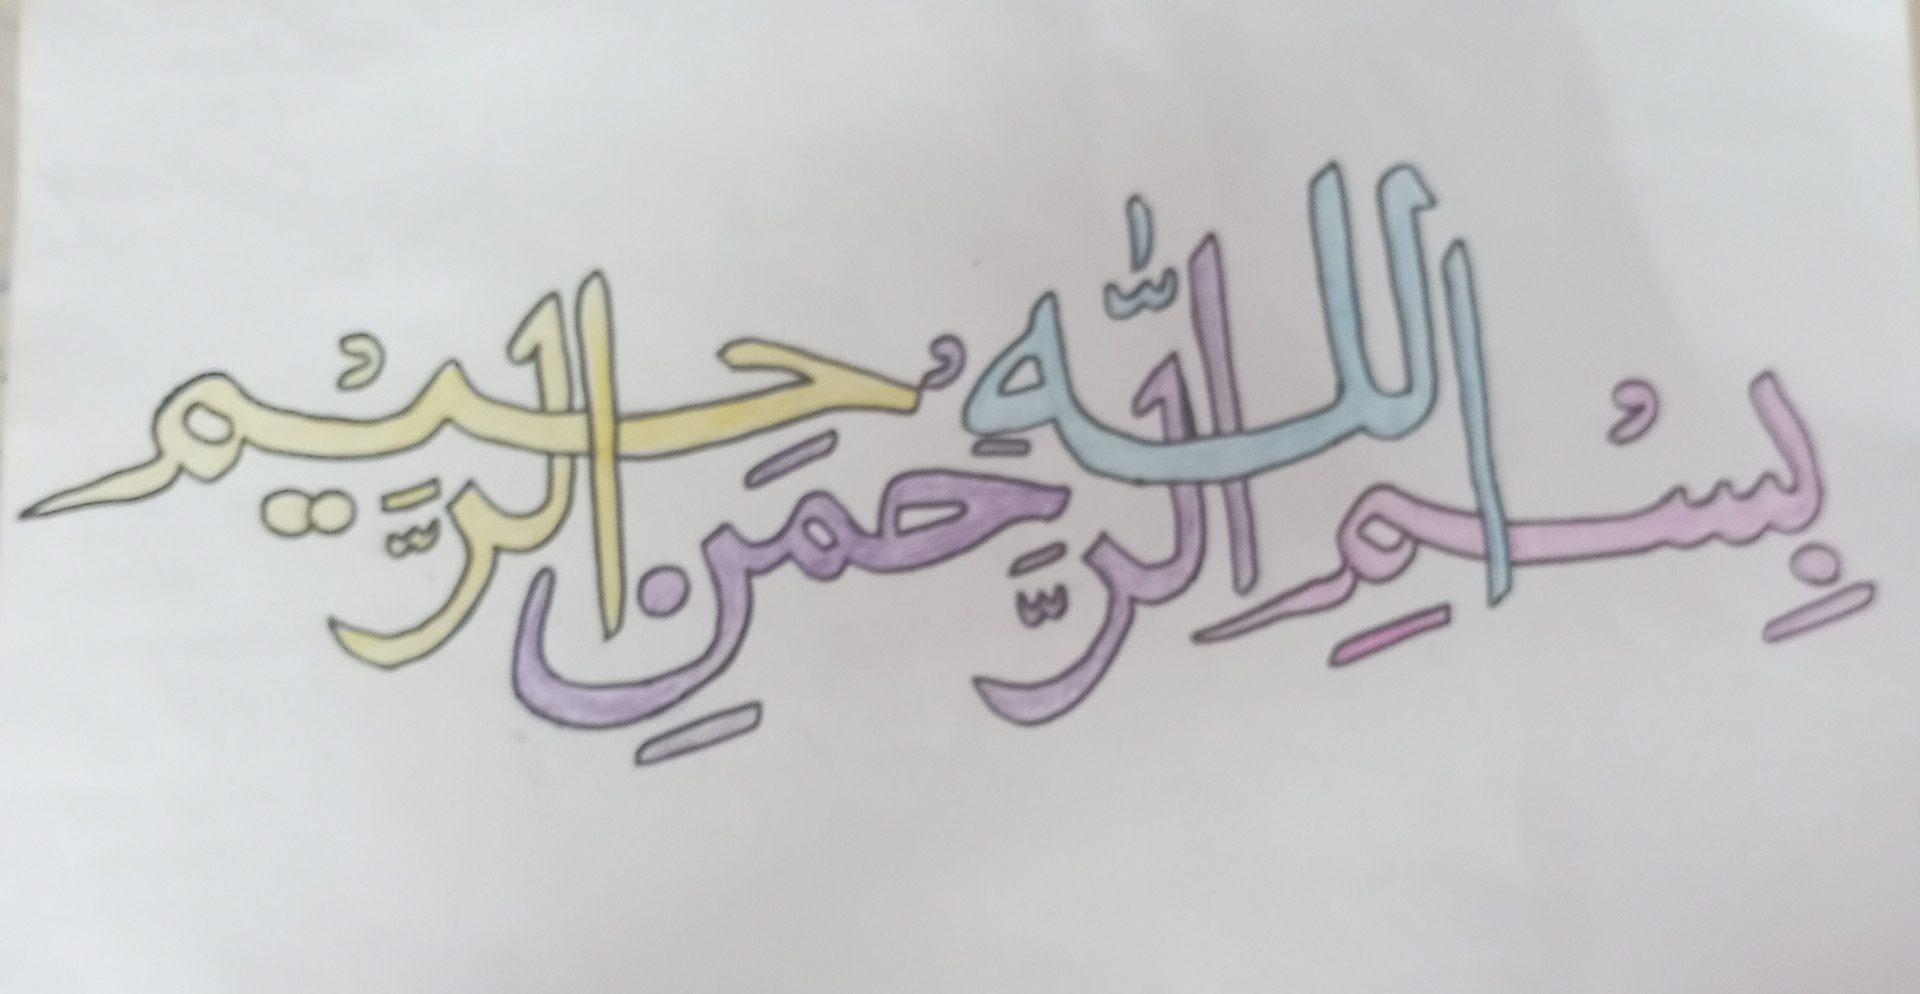 بِسْمِ اللّٰهِ الرَّحْمَنِ الرَّحيْم